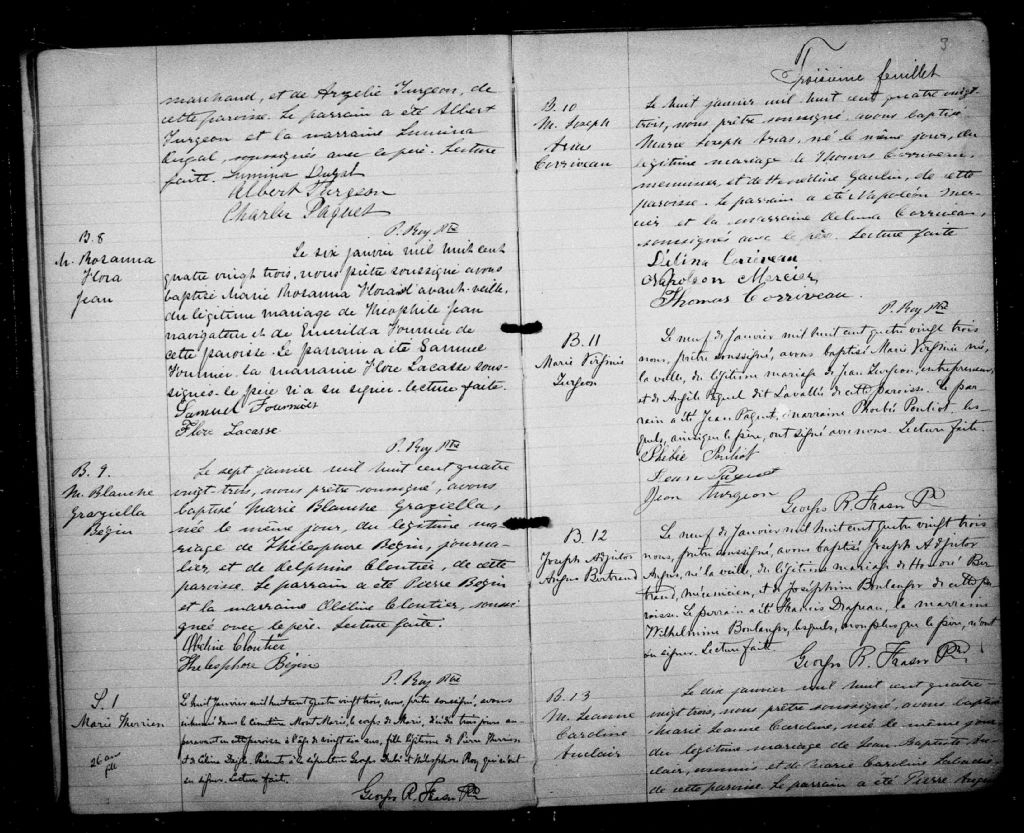 marchand, et de Arzelie Turgeon, de
cette paroisse. Le parrain a été Albert
Turgeon et la marraine Lumina
Dugal, soussignés avec le père. Lecture
faite. Lumina Dugal
Albert Turgeon
Charles Paquet
P. Roy Ptre
B. 8
M. Rosanna
Flora
Jean
Le six janvier mil huit cent
quatre vingt trois, nous prêtre soussigné avons
baptisé Marie Rosanna Flora avant-veille,
du légitime mariage de Théophile Jean
navigateur et de Emerilda Fournier de
cette paroisse. Le parrain a été Samuel
Fournier la marraine Flore Lacasse sous-
signés. le père n'a su signer. lecture faite.
Samuel Fournier
Flore Lacasse
P. Roy Ptre
B. 9.
M. Blanche
Graziella
Bégin
Le sept janvier mil huit cent quatre
vingt-trois, nous prêtre soussigné, avons
baptisé Marie Blanche Graziella,
née le même jour, du légitime ma-
riage de Thélesphore Bégin, journa-
lier, et de delphine Cloutier, de cette
paroisse. Le parrain a été Pierre Bégin
et la marraine Obéline Cloutier, soussi-
gnée avec le père. Lecture faite.
Obéline Cloutier
Thélesphore Bégin
P. Roy Ptre
S. 1
Marie Therrien
26 ans
Le huit Janvier mil huit cent quatre vingt trois, nous, prêtre soussigné, avons
inhumé dans le cimetière Mont-Marie, le corps de Marie, décédée trois jours au-
paravant en cette paroisse à l'âge de vingt six ans, fille légitime de Pierre Therrien
et de Célina Daigle. Présents à la sépulture Georges Dubé et Thélesphore Roy, qui n'ont
su signer. Lecture faite.
Georges R. Fraser Ptre
3
Troisième feuillet
B. 10
M. Joseph
Arias
Corriveau
Le huit janvier mil huit cent quatre vingt-
trois, nous prêtre soussigné avons baptisé
Marie Joseph Arias, né le même jour, du
légitime mariage de Thomas Corriveau,
menuisier, et de Henédine Gaulin, de cette
paroisse. Le parrain a été Napoléon Mer-
cier et la marraine Delima Corriveau,
soussignés avec le père. Lecture faite
Délina Corriveau
Napoléon Mercier
Thomas Corriveau.
P. Roy Ptre
B. 11
Marie Virginie
Turgeon
Le neuf de Janvier mil huit cent quatre vingt trois
nous, prêtre soussigné, avons baptisé Marie Virginie née,
la veille, du légitime mariage de Jean Turgeon, entrepreneur,
et de Angèle Paquet dit Lavallée de cette paroisse. Le par-
rain a été Jean Paquet, la marraine Phoebée Pouliot les-
quels, ainsi que le père, ont signé avec nous. Lecture faite.
Phébée Pouliot
Jean Paquet
Jean Turgeon
Georges R. Fraser Ptre
B. 12
Joseph Adjutor
Angus Bertrand
Le neuf de Janvier mil huit cent quatre vingt trois
nous, prêtre soussigné, avons baptisé Joseph Adjutor
Angus, né la veille, du légitime mariage de Honoré Ber-
trand, mécanicien, et de Joséphine Boulanger de cette pa-
roisse. Le parrain a été Francis Drapeau, la marraine
Wilhelmine Boulanger, lesquels, non plus que le père, n'ont
su signer. Lecture faite.
Georges R. Fraser Ptre
B. 13
M. Jeanne
Caroline
Auclair
Le dix janvier mil huit cent quatre-
vingt trois, nous prêtre soussigné, avons baptisé
Marie Jeanne Caroline, née le même jour
du légitime mariage de Jean Baptiste Au-
clair, et de Marie Caroline
de cette paroisse. Le parrain a été Pierre